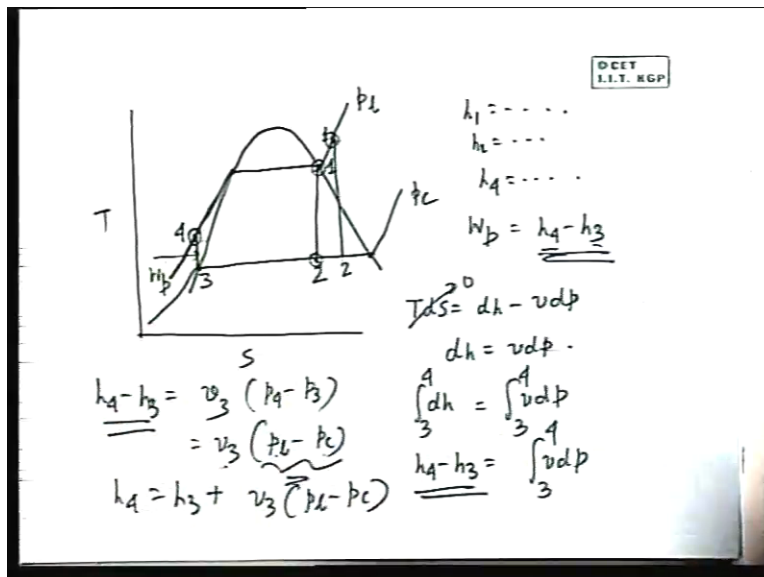 © CET
I.I.T. KGP
T
S
p_b
p_c
1
1
2
2
3
4
W_p
h_1 = - - - - .
h_2 = - - -
h_4 = - - - - .
W_p = h_4 - h_3
Tds = dh - vdp
0
dh = vdp .
∫_3^4 dh = ∫_3^4 vdp
h_4 - h_3 = ∫_3^4 vdp
h_4 - h_3 = v_3 (p_4 - p_3)
= v_3 (p_b - p_c)
h_4 = h_3 + v_3 (p_b - p_c)